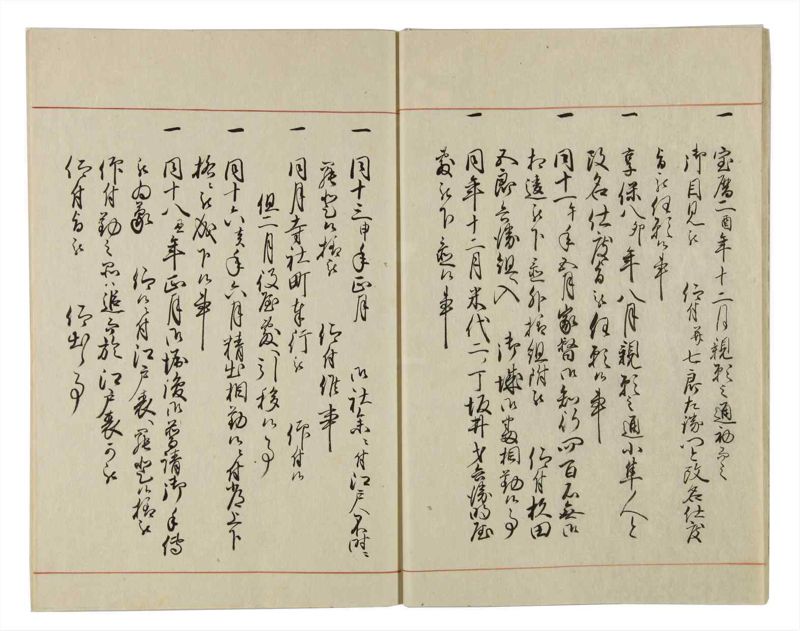 一 宝暦二酉年十二月親願之通初而之
御目見被 仰付并七郎左衛門と改名仕度
旨被任願候事
一 享保八卯年八月親願之通小隼人と
改名仕度旨被任願候事
一 同十一午年五月家督御知行四百石無御
相違被下置外格組附被 仰付杉田
五郎兵衛組入 御城御番相勤候事
一 同年十二月米代二ノ丁坂井才兵衛明屋
敷被下置候事
一 同十三申年正月 御社参ニ付江戸
罷登候様被 仰付候事
一 同月寺社町奉行被 仰付候
但二月役屋敷へ引移候事
一 同十六亥年六月精出相勤候ニ付上下
拾被成下候事
一 同十八丑年正月御堀浚御普請御手伝
被為蒙 仰候ニ付江戸表へ罷登候様被
仰付勤之品ハ追而於江戸表可被
仰付旨被 仰出候事